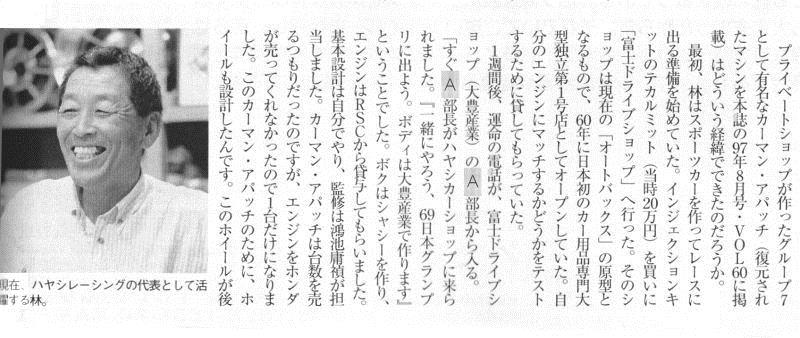 プライベートショップが作ったグループ7
として有名なカーマン・アパッチ（復元され
たマシンを本誌の97年8月号・VOL60に掲
載）はどういう経緯でできたのだろうか。
最初、林はスポーツカーを作ってレースに
出る準備を始めていた。インジェクションキ
ットのテカルミット（当時20万円）を買いに
「富士ドライブショップ」へ行った。そのシ
ョップは現在の「オートバックス」の原型と
なるもので、60年に日本初のカー用品専門大
型独立第1号店としてオープンしていた。自
分のエンジンにマッチするかどうかをテスト
するために貸してもらっていた。
1週間後、運命の電話が、富士ドライブシ
ョップ（大豊産業）のA部長から入る。
「すぐA部長がハヤシカーショップに来ら
れました。『一緒にやろう、69日本グランプ
リに出よう。ボディは大豊産業で作ります』
ということでした。ボクはシャシーを作り、
エンジンはRSCから貸与してもらいました。
基本設計は自分でやり、監修は鴻池庸禎が担
当しました。カーマン・アパッチは台数を売
るつもりだったのですが、エンジンをホンダ
が売ってくれなかったので1台だけになりま
した。このカーマン・アパッチのために、ホ
イールも設計したんです。このホイールが後
現在、ハヤシレーシングの代表として活
躍する林。